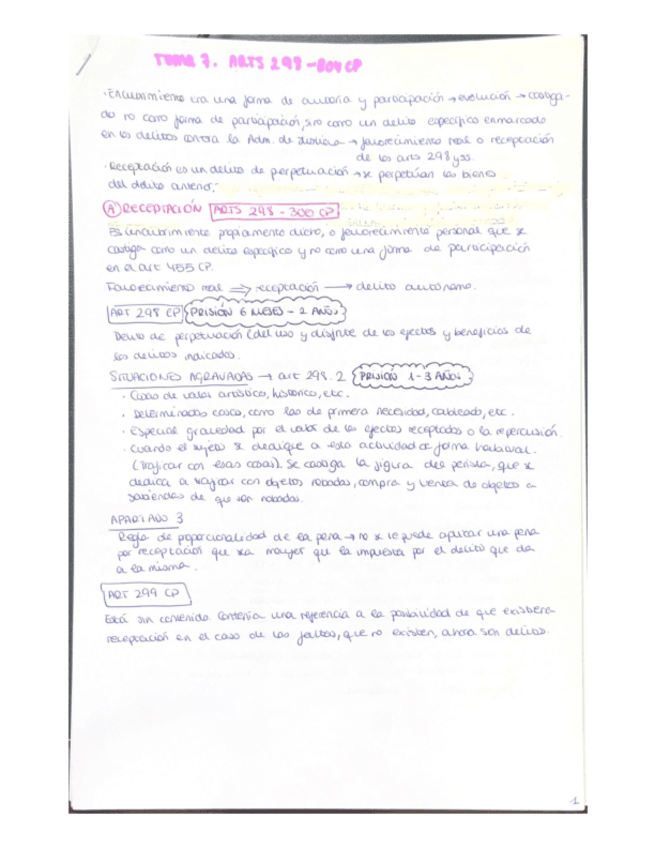 TEMA 7. ARTS 298-304 CP
· Encubrimiento era una forma de autoría y participación → evolución → castiga-
do no como forma de participación, sino como un delito específico enmarcado
en los delitos contra la Adm. de Justicia → favorecimiento real o receptación
de los arts 298 y ss.
· Receptación es un delito de perpetuación → se perpetúan los bienes
del delito anterior.
Ⓐ RECEPTACIÓN ARTS 298 - 300 CP
Es encubrimiento propiamente dicho, o favorecimiento personal que se
castiga como un delito específico y no como una forma de participación
en el art 455 CP.
Favorecimiento real ⇒ receptación → delito autónomo.
ART 298 CP PRISIÓN 6 MESES - 2 AÑOS
Delito de perpetuación (del uso y disfrute de los efectos y beneficios de
los delitos indicados.
SITUACIONES AGRAVADAS → art 298.2 PRISIÓN 1-3 AÑOS
· Cosas de valor artístico, histórico, etc.
· Determinadas cosas, como las de primera necesidad, cableado, etc.
· Especial gravedad por el valor de los efectos receptados o la repercusión.
· Cuando el sujeto se dedique a esta actividad de forma habitual.
(traficar con esas cosas). Se castiga la figura del perista, que se
dedica a traficar con objetos robados, compra y venta de objetos a
sabiendas de que son robados.
APARTADO 3
Regla de proporcionalidad de la pena → no se le puede aplicar una pena
por receptación que sea mayor que la impuesta por el delito que da
a la misma.
ART 299 CP
Está sin contenido. Contenía una referencia a la posibilidad de que existiera
receptación en el caso de las faltas, que no existen, ahora son delitos.
1